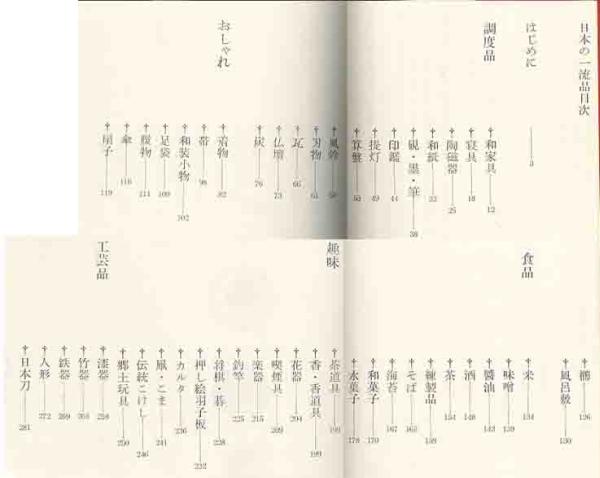 日本の一流品目次
はじめに 3
調度品
和家具 12
寝具 18
陶磁器 25
和紙 32
硯・墨・筆 38
印鑑 44
提灯 49
算盤 55
風鈴
刃物 61
瓦 66
仏壇 73
炭 76
おしゃれ
着物 82
帯 98
和装小物 102
足袋 109
履物 114
傘 116
扇子 119
櫛 126
風呂敷 130
食品
米 134
味噌 139
醬油 143
酒 148
茶 154
練製品 159
そば 162
海苔 167
和菓子 170
水菓子 178
趣味
茶道具 193
香・香道具 199
花器 204
喫煙具 209
楽器 215
釣竿 225
将棋・碁 228
押し絵羽子板 232
カルタ 236
凧・こま 241
伝統こけし 246
郷土玩具 250
工芸品
漆器 258
竹器
鉄器 269
人形 272
日本刀 281